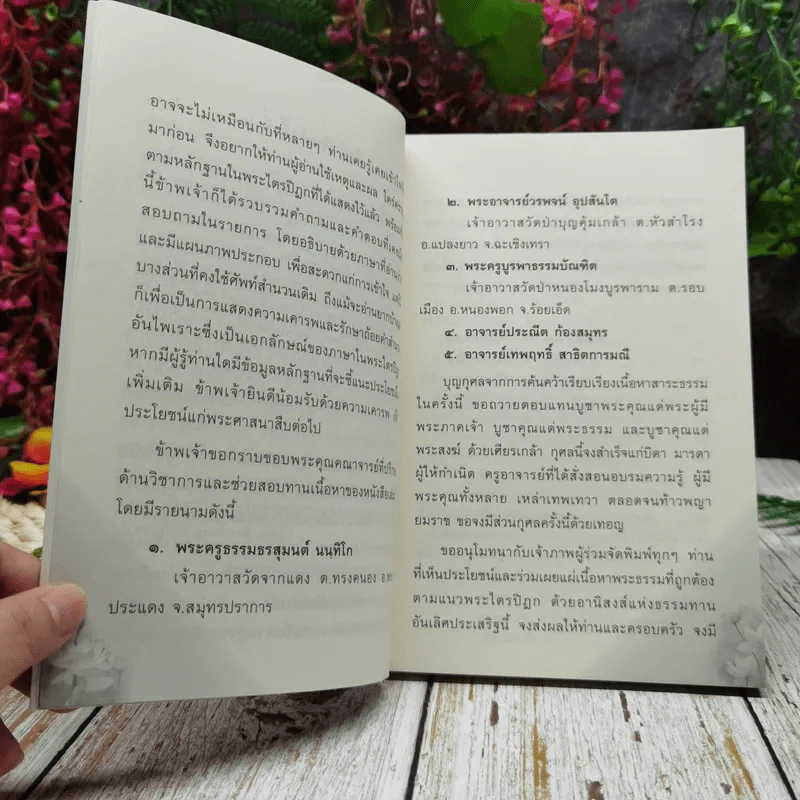 อาจจะไม่เหมือนกับที่หลายๆ ท่านเคยรู้เคยเข้าใจ
มาก่อน จึงอยากให้ท่านผู้อ่านใช้เหตุและผล
ตามหลักฐานในพระไตรปิฎกที่ได้แสดงไว้แล้ว
นี้ข้าพเจ้าก็ได้รวบรวมคำถามและคำตอบที่เคย
สอบถามในรายการ โดยอธิบายด้วยภาษาที่อ่าน
และมีแผนภาพประกอบ เพื่อสะดวกแก่การเข้าใจ
บางส่วนที่คงใช้ศัพท์สำนวนเดิม ถึงแม้จะอ่านยากบ้าง
ก็เพื่อเป็นการแสดงความเคารพและรักษาถ้อยคำ
อันไพเราะซึ่งเป็นเอกลักษณ์ของภาษาในพระไตรปิฎก
หากมีผู้รู้ท่านใดมีข้อมูลหลักฐานที่จะชี้แนะ
เพิ่มเติม ข้าพเจ้ายินดีน้อมรับด้วยความเคารพ
ประโยชน์แก่พระศาสนาสืบต่อไป
ข้าพเจ้าขอกราบขอบพระคุณคณาจารย์ที่
ด้านวิชาการและช่วยสอบทานเนื้อหาของหนังสือ
โดยมีรายนามดังนี้
๑. พระครูธรรมธรสุมนต์ นนฺทิโก
เจ้าอาวาสวัดจากแดง ต.ทรงคนอง อ.พระ
ประแดง จ.สมุทรปราการ
๒. พระอาจารย์วรพจน์ อุปสันโต
เจ้าอาวาสวัดป่าบุญคุ้มเกล้า ต.หัวสำโรง
อ.แปลงยาว จ.ฉะเชิงเทรา
๓. พระครูบูรพาธรรมบัณฑิต
เจ้าอาวาสวัดป่าหนองโมงบูรพาราม ต.รอบ
เมือง อ.หนองพอก จ.ร้อยเอ็ด
๔. อาจารย์ประณีต ก้องสมุทร
๕. อาจารย์เทพฤทธิ์ สาธิตการมณี
บุญกุศลจากการค้นคว้าเรียบเรียงเนื้อหาสาระธรรม
ในครั้งนี้ ขอถวายตอบแทนบูชาพระคุณแด่พระผู้มี
พระภาคเจ้า บูชาคุณแด่พระธรรม และบูชาคุณแด่
พระสงฆ์ ด้วยเศียรเกล้า กุศลนี้จงสำเร็จแก่บิดา มารดา
ผู้ให้กำเนิด ครูอาจารย์ที่ได้สั่งสอนอบรมความรู้ ผู้มี
พระคุณทั้งหลาย เหล่าเทพเทวา ตลอดจนท้าวพญา
ยมราช ขอจงมีส่วนกุศลครั้งนี้ด้วยเทอญ
ขออนุโมทนากับเจ้าภาพผู้ร่วมจัดพิมพ์ทุกๆ ท่าน
ที่เห็นประโยชน์และร่วมเผยแผ่เนื้อหาพระธรรมที่ถูกต้อง
ตามแนวพระไตรปิฎก ด้วยอานิสงส์แห่งธรรมทาน
อันเลิศประเสริฐนี้ จงส่งผลให้ท่านและครอบครัว จงมี